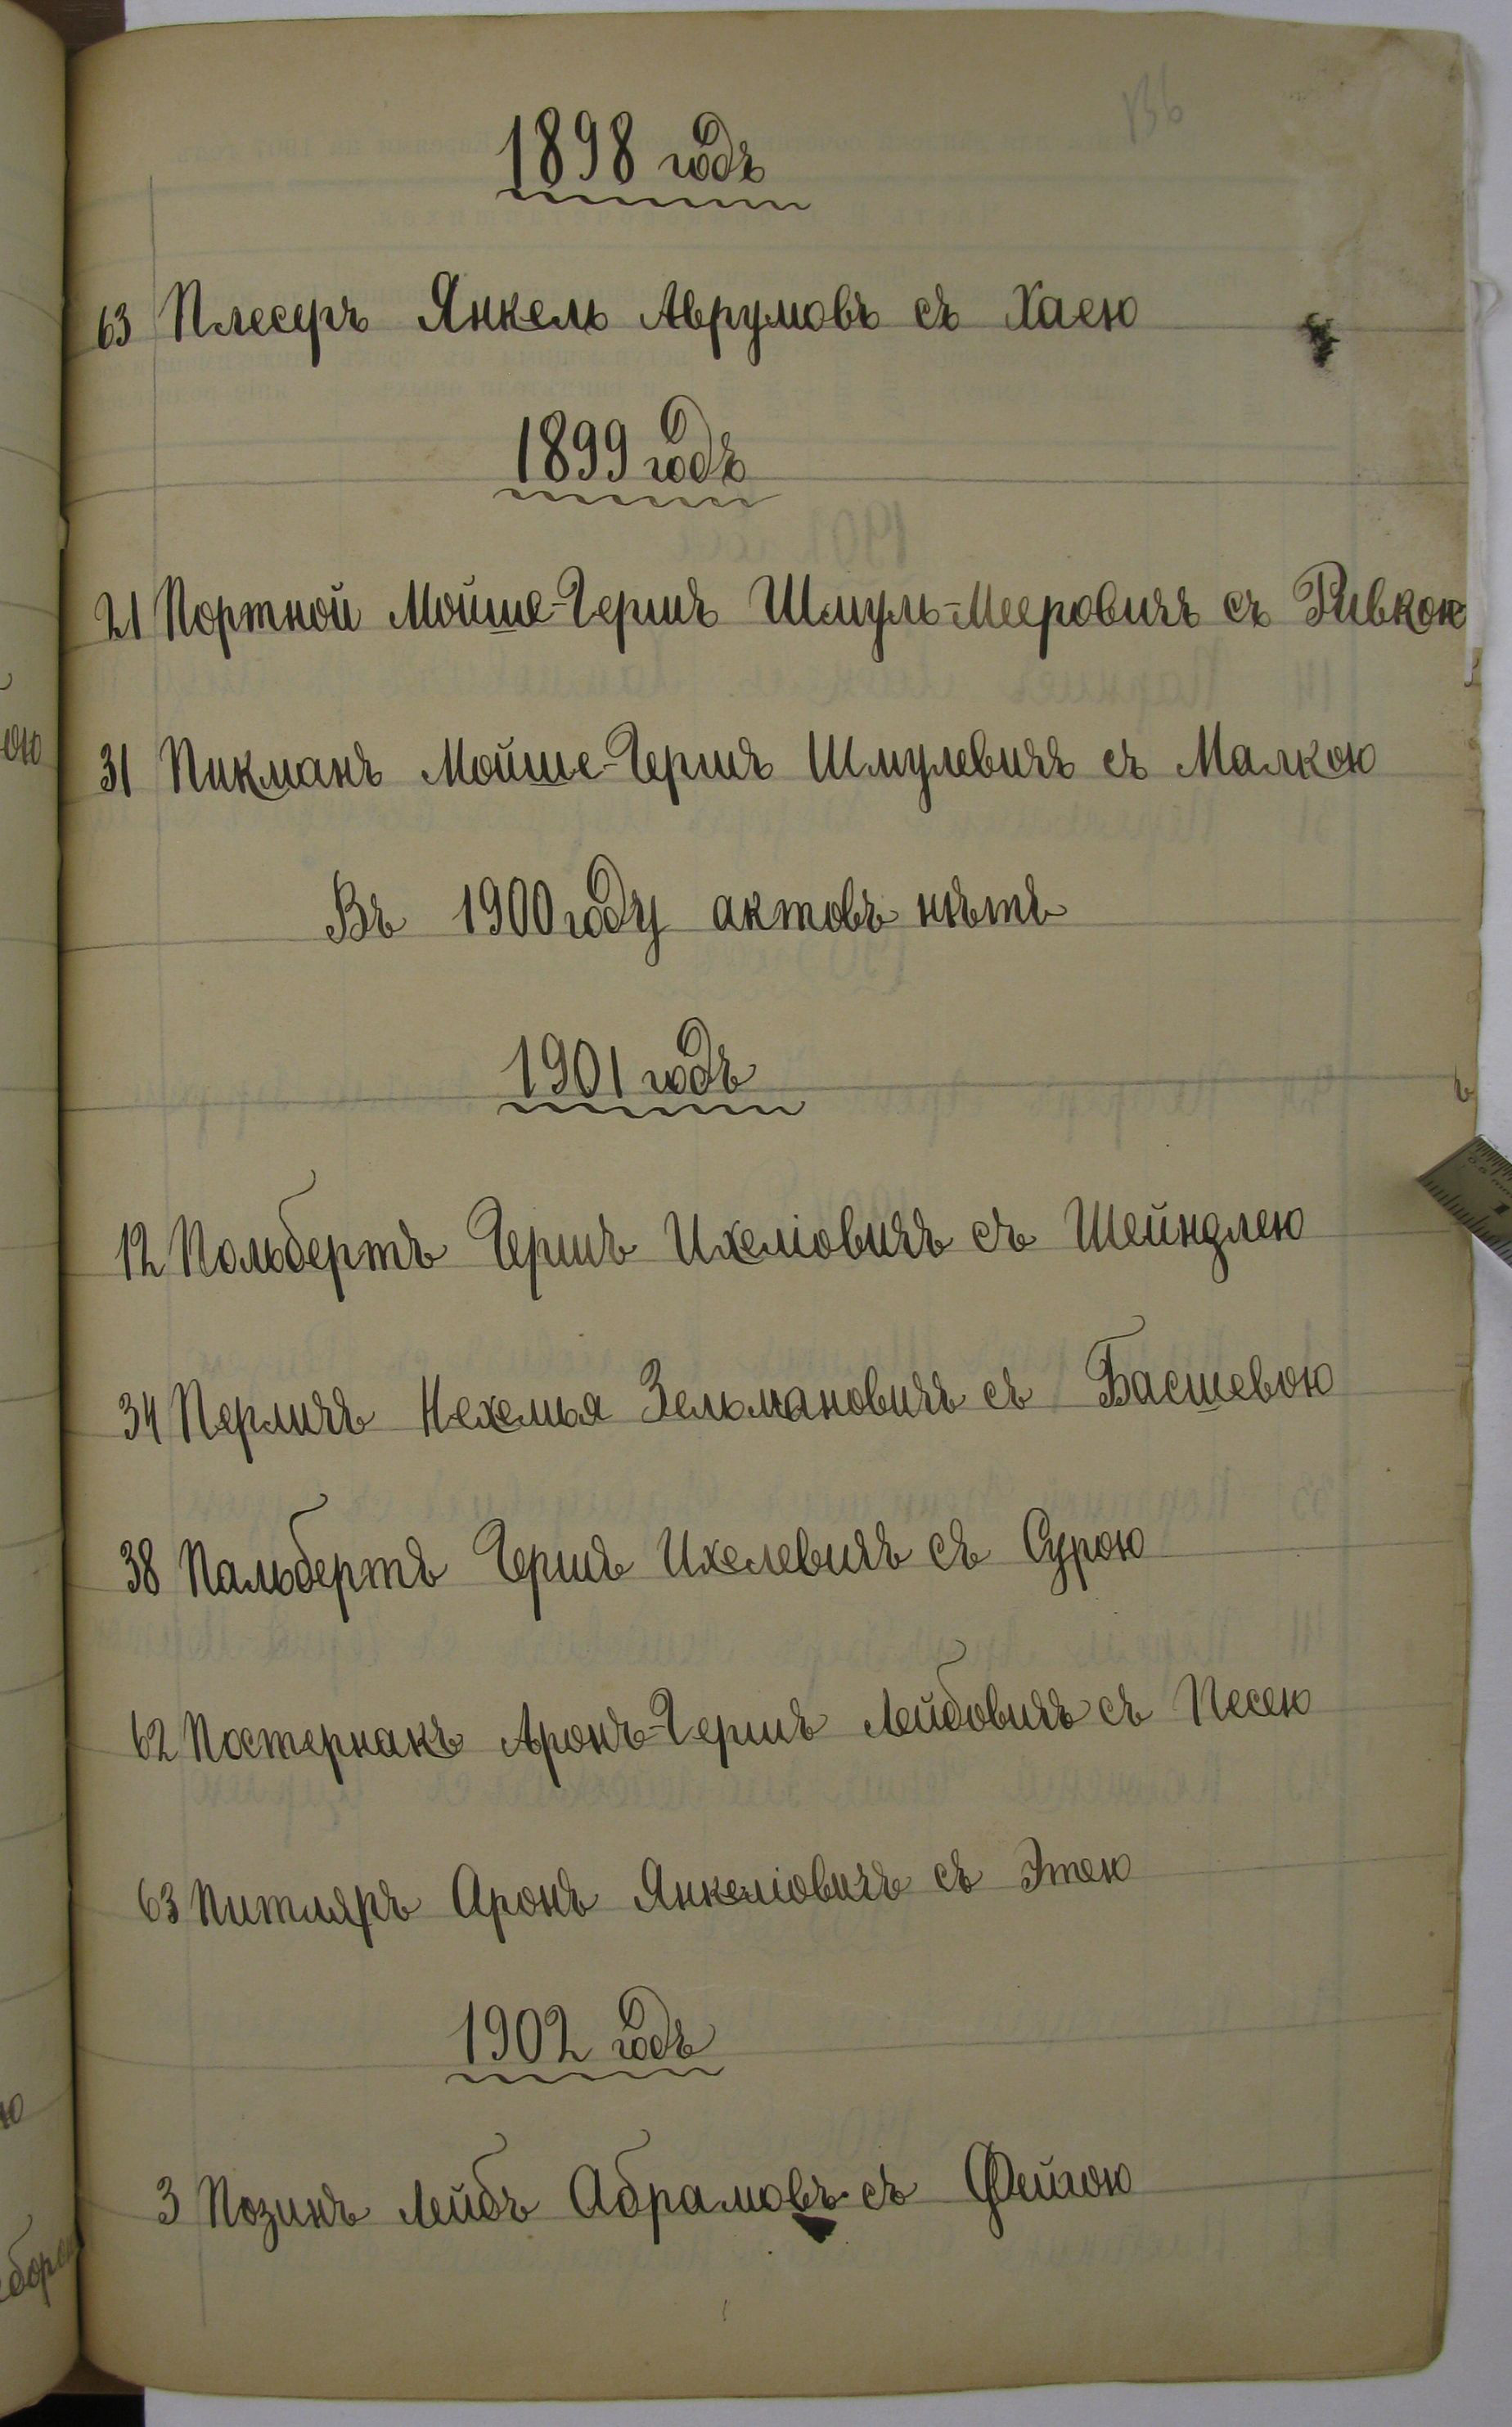 1898 годъ
63 Плесеръ Янкель Аврумовъ съ Хаею
1899 годъ
21 Портной Мойше-Гершъ Шмуль-Мееровичъ съ Ривкою
31 Пикманъ Мойше-Гершъ Шмулевичъ съ Малкою
Въ 1900 году актовъ нѣтъ
1901 годъ
12 Польбертъ Гершъ Ихеліовичъ съ Шейндлею
34 Перличъ Нехемья Зельмановичъ съ Басшевою
38 Пальбертъ Гершъ Ихелевичъ съ Сурою
62 Постернакъ Аронъ-Гершъ Лейбовичъ съ Песею
63 Питляръ Аронъ Янкеліовичъ съ Этею
1902 годъ
3 Позинъ Лейбъ Абрамовъ съ Фейгою